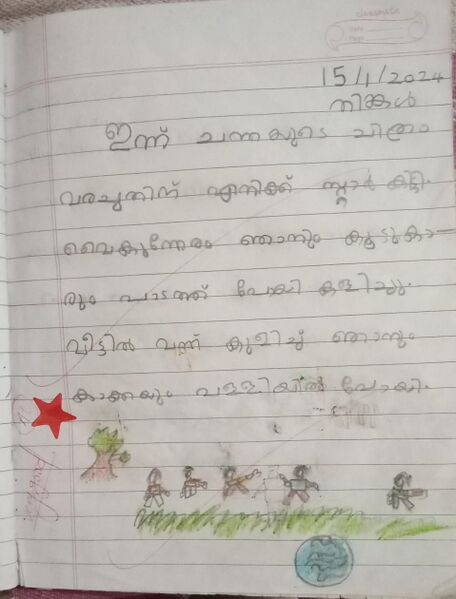 classmate
Date
Page
15/1/2024
തിങ്കൾ
ഇന്ന് ചന്തയുടെ ചിത്രം
വരച്ചതിന് എനിക്ക് സ്റ്റാർ കിട്ടി.
വൈകുന്നേരം ഞാനും കൂട്ടുകാ-
രും പാടത്ത് പോയി കളിച്ചു.
വീട്ടിൽ വന്ന് കുളിച്ച് ഞാനും
കാക്കയും പള്ളിയിൽ പോയി.